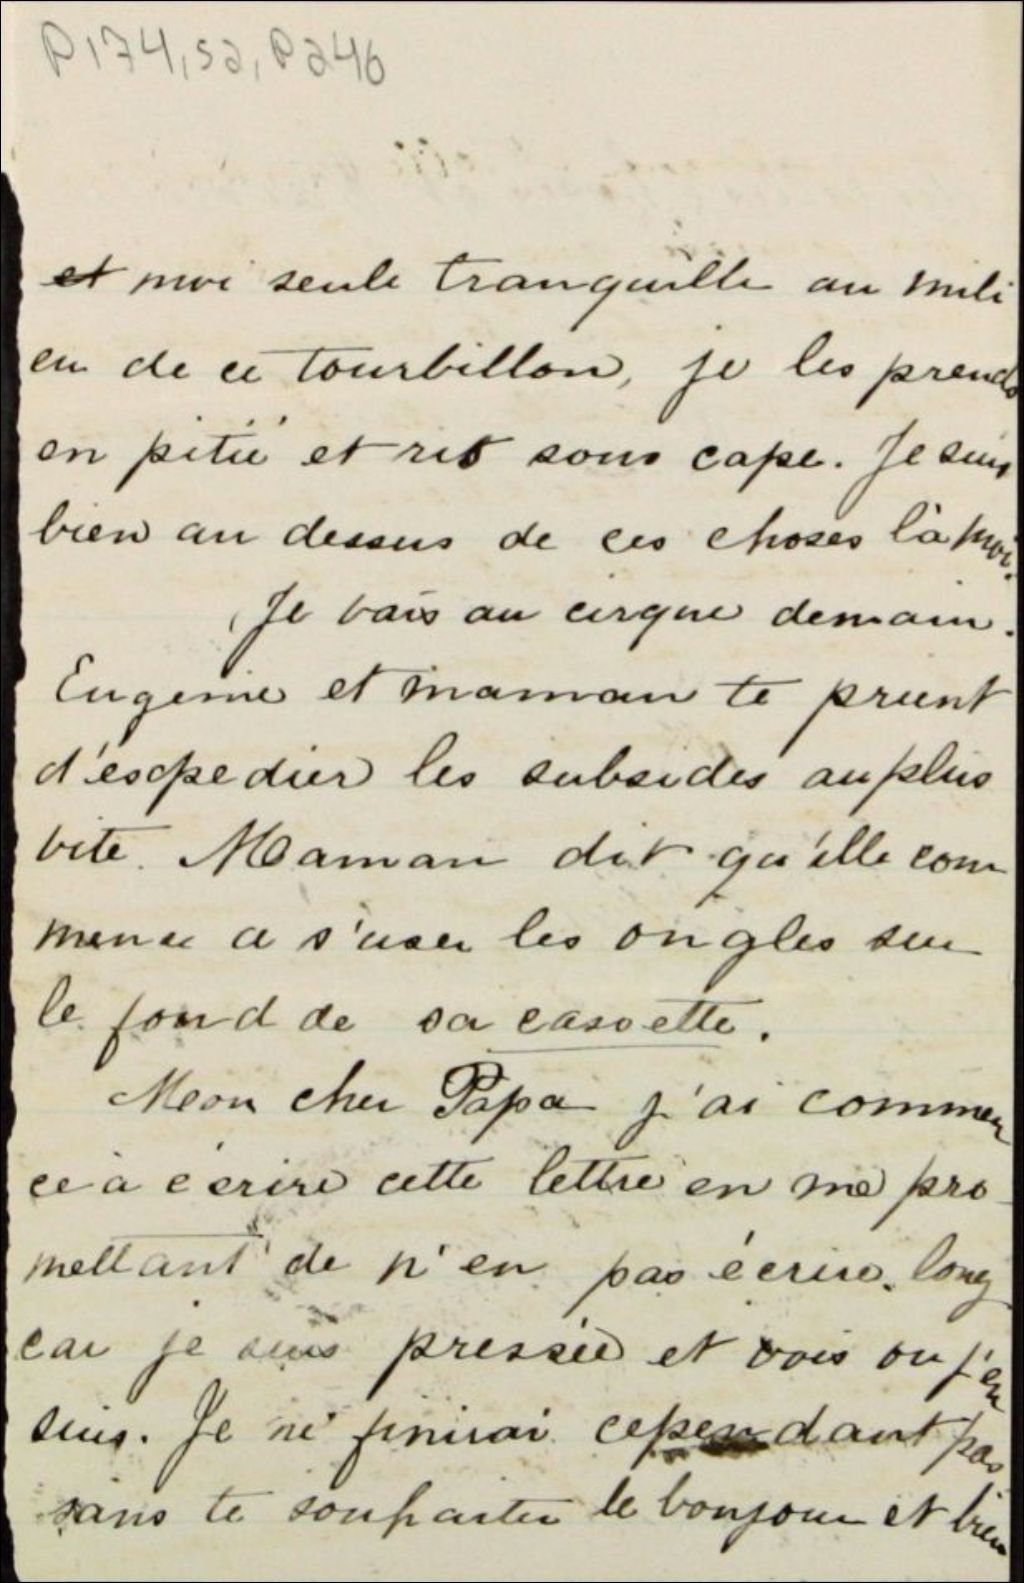 P174,S2,P246
et moi seule tranquille au mili
eu de ce tourbillon, je les prends
en pitié et ris sous cape. Je suis
bien au dessus de ces choses là moi.
Je vais au cirque demain.
Eugenie et maman te prient
d'expedier les subsides au plus
vite. Maman dit qu'elle com
mence a s'user les ongles sur
le fond de sa cassette.
Mon cher Papa j'ai commen
cé à écrire cette lettre en me pro
mettant de n'en pas écrire long
car je suis pressée et vois ou j'en
suis. Je ne finirai cependant pas
sans te souhaiter le bonjour et bien